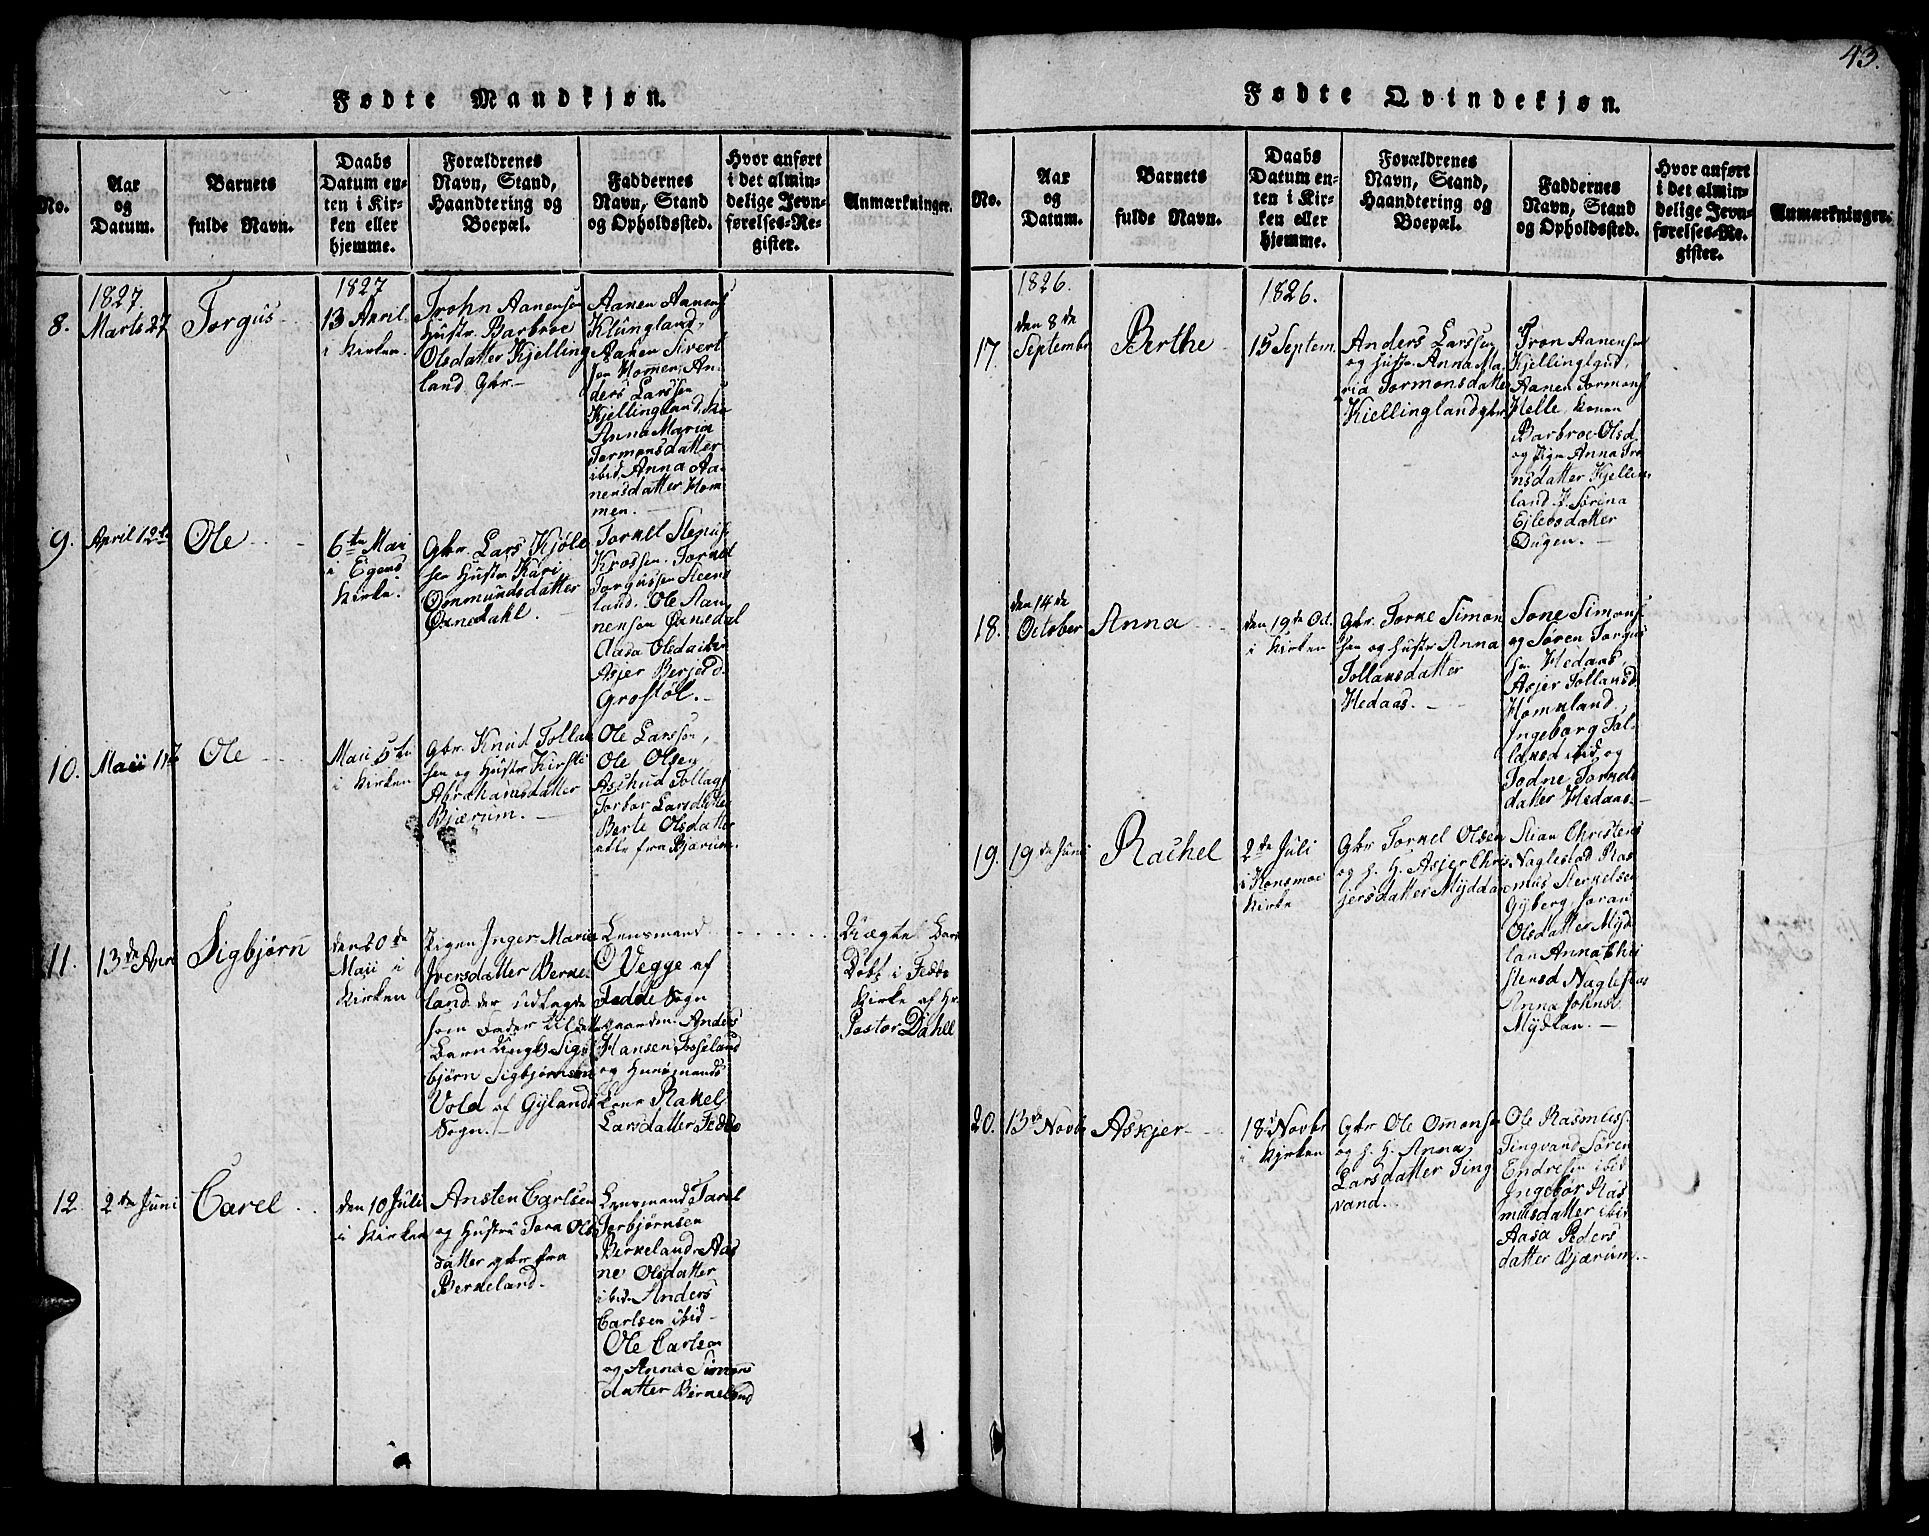 43.
Fødte Mandkjøn.
No.
Aar
og
Datum.
Barnets
fulde Navn.
Daabs
Datum en-
ten i Kir-
ken eller
hjemme.
Forældrenes
Navn, Stand,
Haandtering og
Boepæl.
Faddernes
Navn, Stand
og Opholdssted.
Hvor anført
i det almin-
delige Jevn-
førelses-Re-
gister.
Anmærkninger.
8.
1827.
Marts 27
Torgus
1827
13 April
i Kirken.
Trohn Aanensen
Hustr. Barbroe
Olsdatter Kjelling
land Gbr.
Aanen Aanens
Klungland,
Aanen Sivert
sen Homen, An-
ders Larssen
Kjellingland,
Anna Maria
Tormonsdatter
ibid, Anna Aa-
nensdatter Hom
men.
9.
April 12te
Ole
6te Mai
i Egens
Kirke.
Gbr Lars Kjøle
sen Hustr Kari
Ommundsdatter
Øxnedahl.
Torkel
Krossen. Torkel
Torgussen Steens
land. Ole Aan
nensen Øxnedal
Aasa Olsd ibid
Asjer Berjesd
Grostøl.
10.
Maii
Ole
Maii 5te
i Kirken
Gbr. Knud Tollak
sen og Hustr Kirsti
Abrahamsdatter
Bjærum.
Ole Larssen,
Ole Olsen
Torbor Larsdatter
Berte Olsdatter
alle fra Bjærum.
11.
13de
Sigbjørn
den 20de
Maii i
Kirken
Pigen Inger Maria
Iversdatter Berke
land der udlagde
som Fader til dette
Barn Ungk. Sig
bjørn Sigbjørnsen
Vold af Gylands
Sogn.
Lensmand
O Vegge af
Fedde Sogn
Anders
Hansen Fosseland
og Huusmands
Kone Rakel
Larsdatter Fedde
Uægte Barn
Døbt i Fedde
Kirke af Hr.
Pastor Dahll
12.
2den Juni
Carel
den 10 Juli
i Kirken
Ansten Carlsen
og Hustru Tora Ols
datter gbr fra
Berkeland.
Lensmand Tarel
Torbjørnsen
Birkeland, Aas
ne Olsdatter
ibid, Anders
Carlsen ibid
Ole Carlsen
og Anna Simons
datter Birkeland
Fødte Qvindekjøn.
No.
Aar
og
Datum.
Barnets
fulde Navn.
Daabs
Datum en-
ten i Kir-
ken eller
hjemme.
Forældrenes
Navn, Stand,
Haandtering og
Boepæl.
Faddernes
Navn, Stand
og Opholdssted.
Hvor anført
i det almin-
delige Jevn-
førelses-Re-
gister.
Anmærkninger.
17.
1826.
den 8de
Septembr
Berthe
1826.
15 Septem.
Anders Larssen
og Hustr. Anna Ma
ria Tormonsdatter
Kiellingland gbr
Tron Aanensen
Kjellingland,
Aanen Tormons
Helle, Konen
Barbroe Olsd
og Pige Anna Tro
nsdatter Kjelling
land. P. Sørina
Ejlersdatter
Dugen.
18.
den 14de
October
Anna
den 19de Oct.
i Kirken
Gbr. Torkel Simon
sen og Hustr Anna
Tollaksdatter
Hedaas.
Tone Simons
og Søren Torgus
sen Hedaas,
Asjer Tollaksd
Homeland,
Ingeborg Tol-
laksd ibid og
Todne Torkels
datter Hedaas.
19.
19de Juni
Rachel
2de Juli
i Konsmoe
Kirke
Gbr Torkel Olsen
og h. H. Asjer Chris
jersdatter Myddan
Stian Christens
Naglestad Ras
mus Sterkelsen
Gyberg, Joran
Olsdatter Myd
lan Anna Chri
stensd Naglestad
Anna Johns
Mydlan.
20.
13de Novbr
Askjer
18de Novbr
i Kirken
Gbr Ole Omonsen
og h. H. Anna
Larsdatter Ting
vand.
Ole Rasmuss
Tingvand Søren
Endresen ibid
Ingebor Ras
musdatter ibid
Aasa Peders
datter Bjærum.